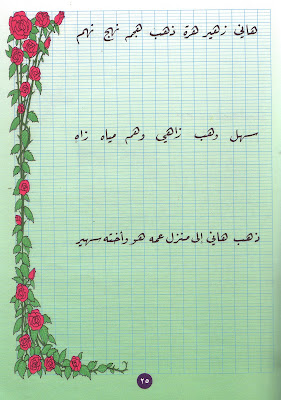 هاني زهير هرة ذهب هجم نهج نهم
سهل وهب زاهي وهم مياه زاه
ذهب هاني إلى منزل عمه هو وأخته سهير
٢٥